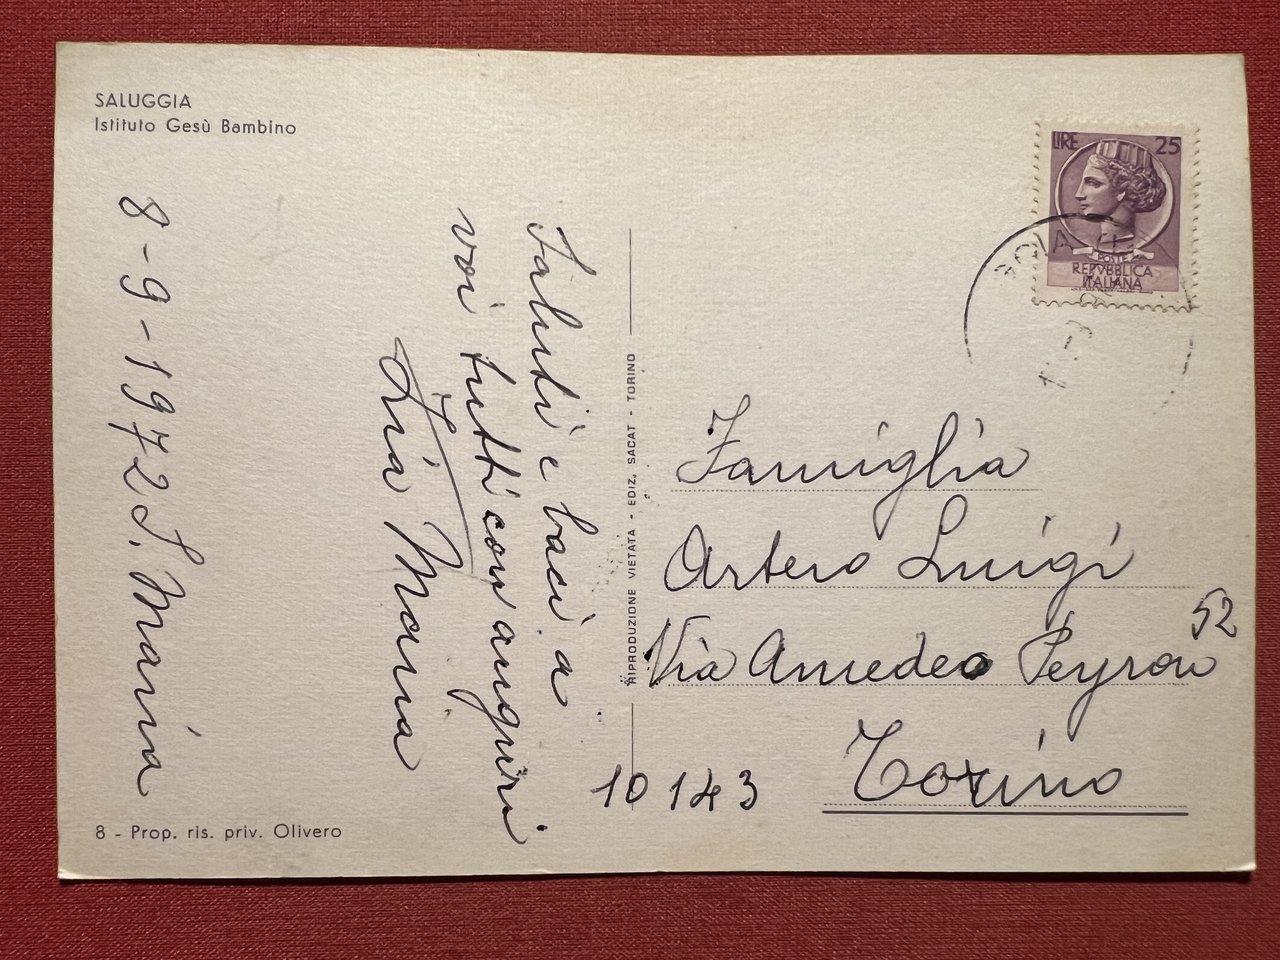 SALUGGIA
Istituto Gesù Bambino
8-9-1972 S. Maria
Saluti e baci a
voi tutti con auguri
Zia Maria
8 - Prop. ris. priv. Olivero
RIPRODUZIONE VIETATA - EDIZ. SACAT - TORINO
LIRE 25
POSTE
REPVBBLICA
ITALIANA
Famiglia
Artero Luigi
52
Via Amedeo Peyron
10143 Torino